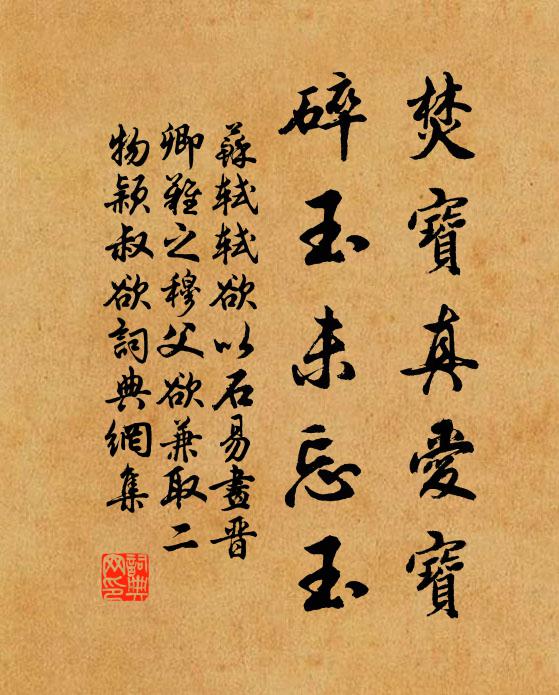 焚寶真愛寶
碎玉未忘玉
蘇軾軾欲以石易畫晋
卿難之穆父欲兼取二
物穎叔欲詞典網集
詞典
网印